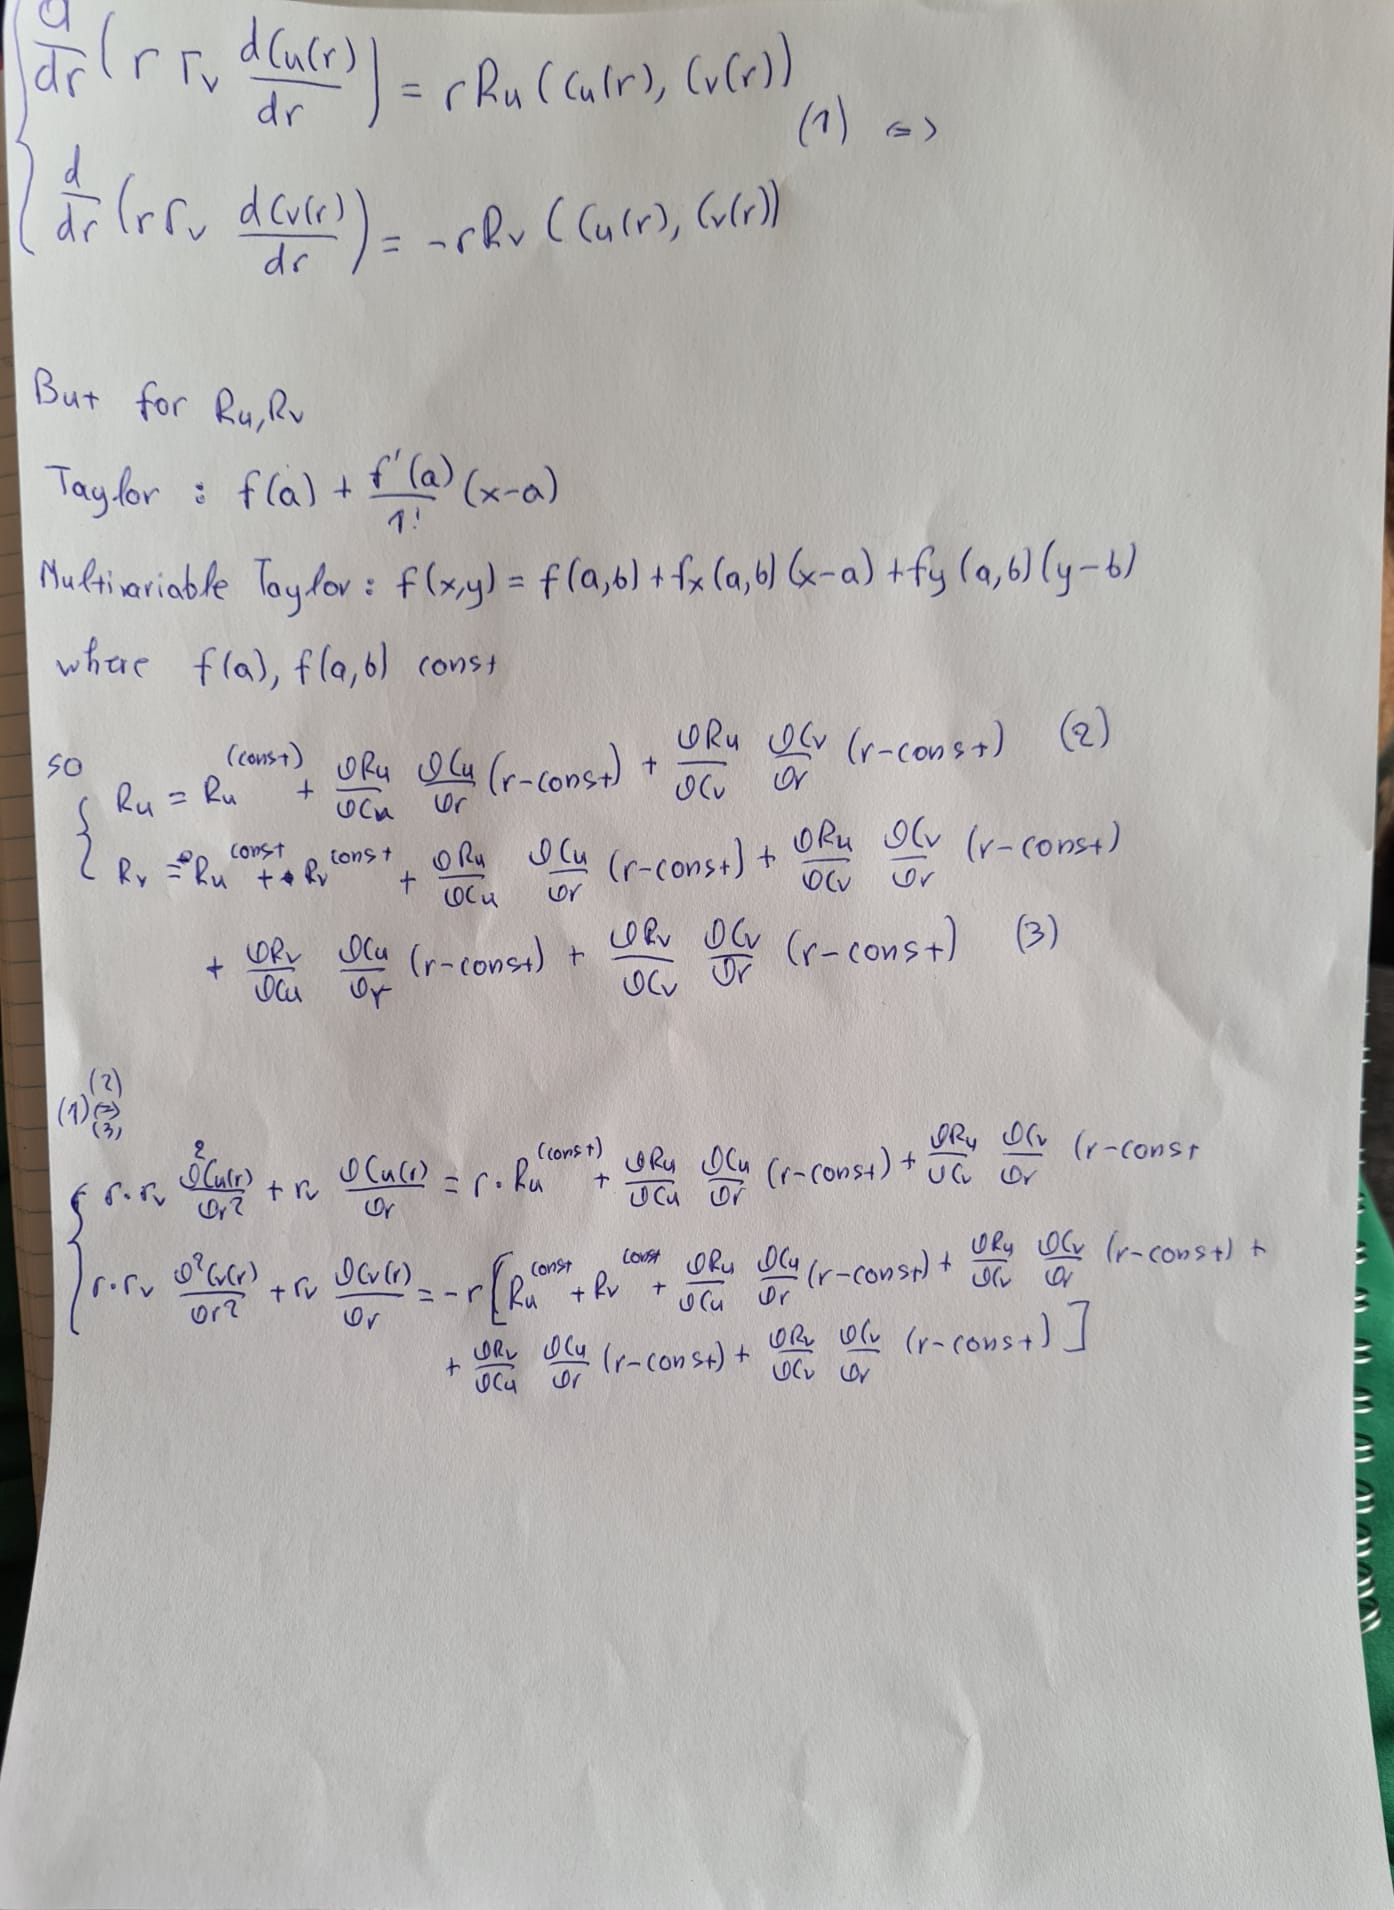 d/dr ( r r_v dCu(r)/dr ) = r Ru ( Cu(r), Cv(r))
(1) <=>
d/dr ( r r_v dCv(r)/dr ) = -r Rv ( Cu(r), Cv(r))
But for Ru, Rv
Taylor : f(a) + f'(a)/1! (x-a)
Multivariable Taylor : f(x,y) = f(a,b) + fx (a,b) (x-a) + fy (a,b) (y-b)
where f(a), f(a,b) const
so Ru = Ru^(const) + ∂Ru/∂Cu ∂Cu/∂r (r-const) + ∂Ru/∂Cv ∂Cv/∂r (r-const) (2)
Rv = Ru^const + Rv^const + ∂Ru/∂Cu ∂Cu/∂r (r-const) + ∂Ru/∂Cv ∂Cv/∂r (r-const)
+ ∂Rv/∂Cu ∂Cu/∂r (r-const) + ∂Rv/∂Cv ∂Cv/∂r (r-const) (3)
(1) (2) <=> (3)
r · r_v ∂²Cu(r)/∂r² + r_v ∂Cu(r)/∂r = r · Ru^(const) + ∂Ru/∂Cu ∂Cu/∂r (r-const) + ∂Ru/∂Cv ∂Cv/∂r (r-const
r · r_v ∂²Cv(r)/∂r² + r_v ∂Cv(r)/∂r = -r [ Ru^const + Rv^const + ∂Ru/∂Cu ∂Cu/∂r (r-const) + ∂Ru/∂Cv ∂Cv/∂r (r-const) +
+ ∂Rv/∂Cu ∂Cu/∂r (r-const) + ∂Rv/∂Cv ∂Cv/∂r (r-const) ]